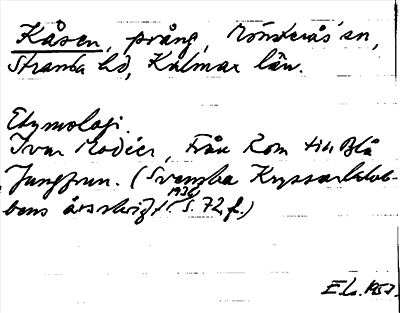 Kåsen, prång, Mönsterås sn,
Stranda hd, Kalmar län.
Etymologi.
Ivar Modéer, Från Rom till Blå
Jungfrun. (Svenska Kryssarklub-
bens årsskrift 1936 s. 72 f.)